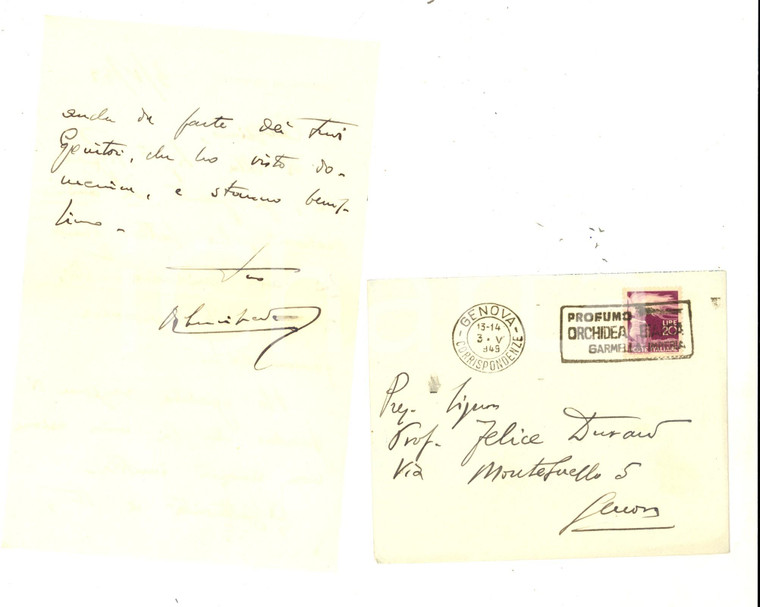 anche da parte dei tuoi
Genitori, che ho visto do-
menica, e stanno benis-
simo -
tuo
GENOVA
13-14
3 · V
949
CORRISPONDENZE
PROFUMO
ORCHIDEA
LIRE
20
Preg. Signor
Prof. Felice Durand
Via Montesuello 5
Genova